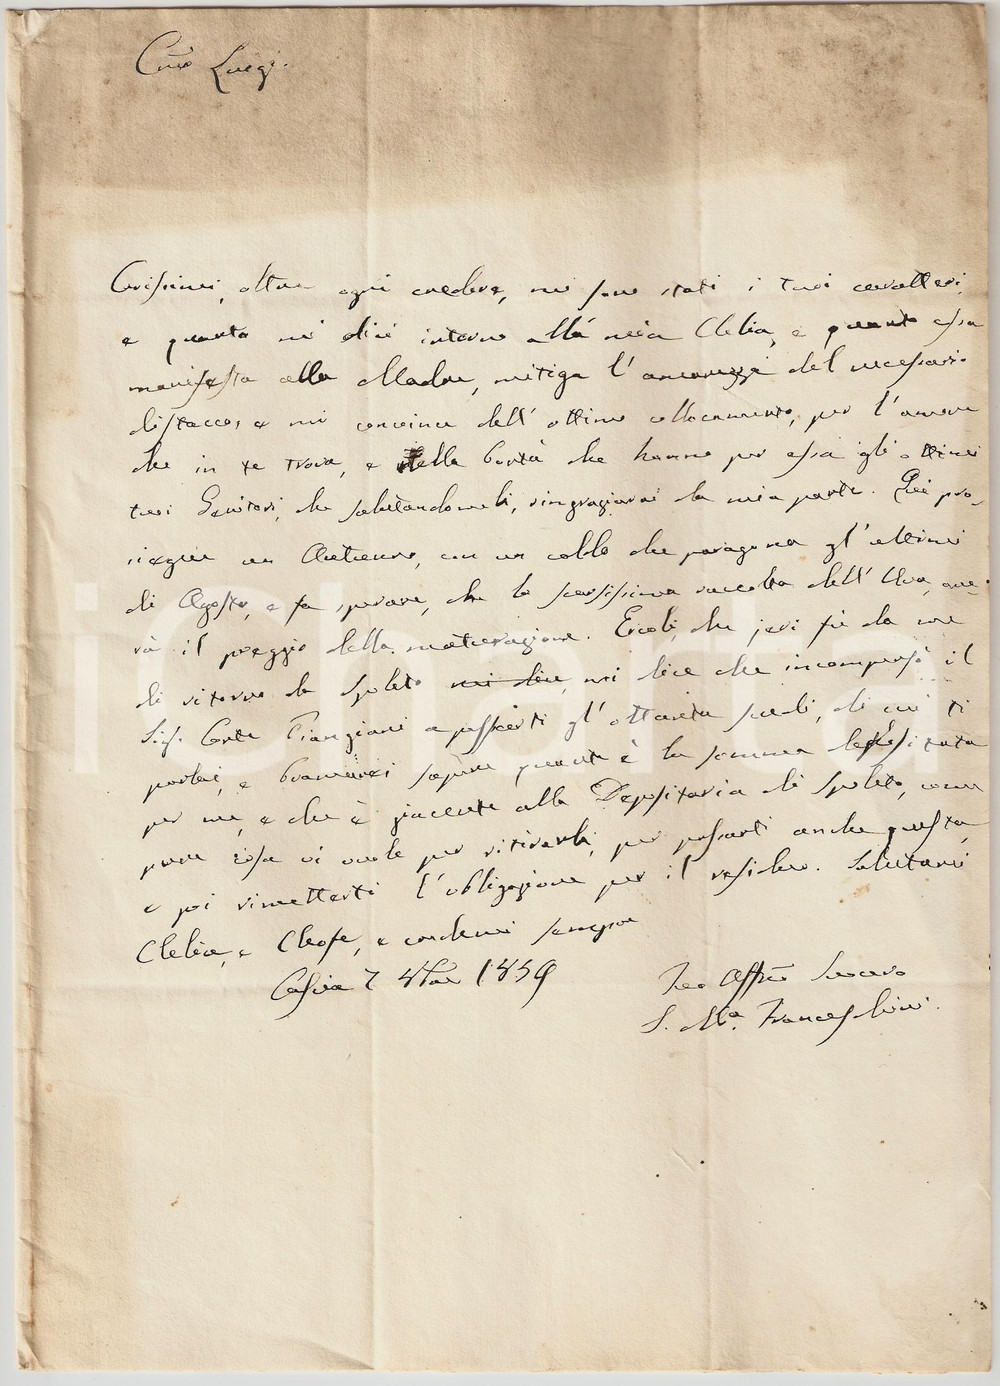 Caro Luigi.
Carissimi, oltre ogni credere, mi sono stati i tuoi caratteri,
e quanto mi dici intorno alla mia Clelia, e quanto essa
manifesta alla Madre, mitiga l'amarezza del necessario
distacco, e mi convince dell'ottimo collocamento, per l'amore
che in te trova, e della bontà che hanno per essa gli ottimi
tuoi Genitori, che salutandomeli, ringrazierai da mia parte. Qui pro-
siegue un Autunno, con un caldo che paragona gl'ultimi
di Agosto, e fa sperare, che la scarsissima raccolta dell'Uva, avo-
rà il preggio della maturazione. Ercole, che jeri fù da me
di ritorno da Spoleto mi dice, mi dice che incompensò il
Sig. Conte Pianciani a passarti gl'ottanta scudi, di cui ti
parlai, e bramerei sapere quanta è la somma depositata
per me, e che è giacente alla Depositaria di Spoleto, come
pure cosa vi vuole per ritirarla, per passarti anche questa,
e poi rimetterti l'obligazione per il residuo. Salutami
Clelia, e Cleofe, e credimi sempre
Cascia 7 8bre 1859
Tuo Affmo Suocero
S. Ma. Franceschini.